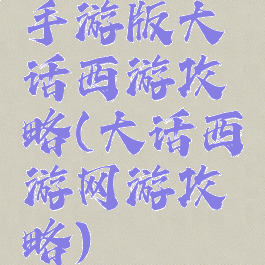 手游版大
话西游攻
略(大话西
游网游攻
略)